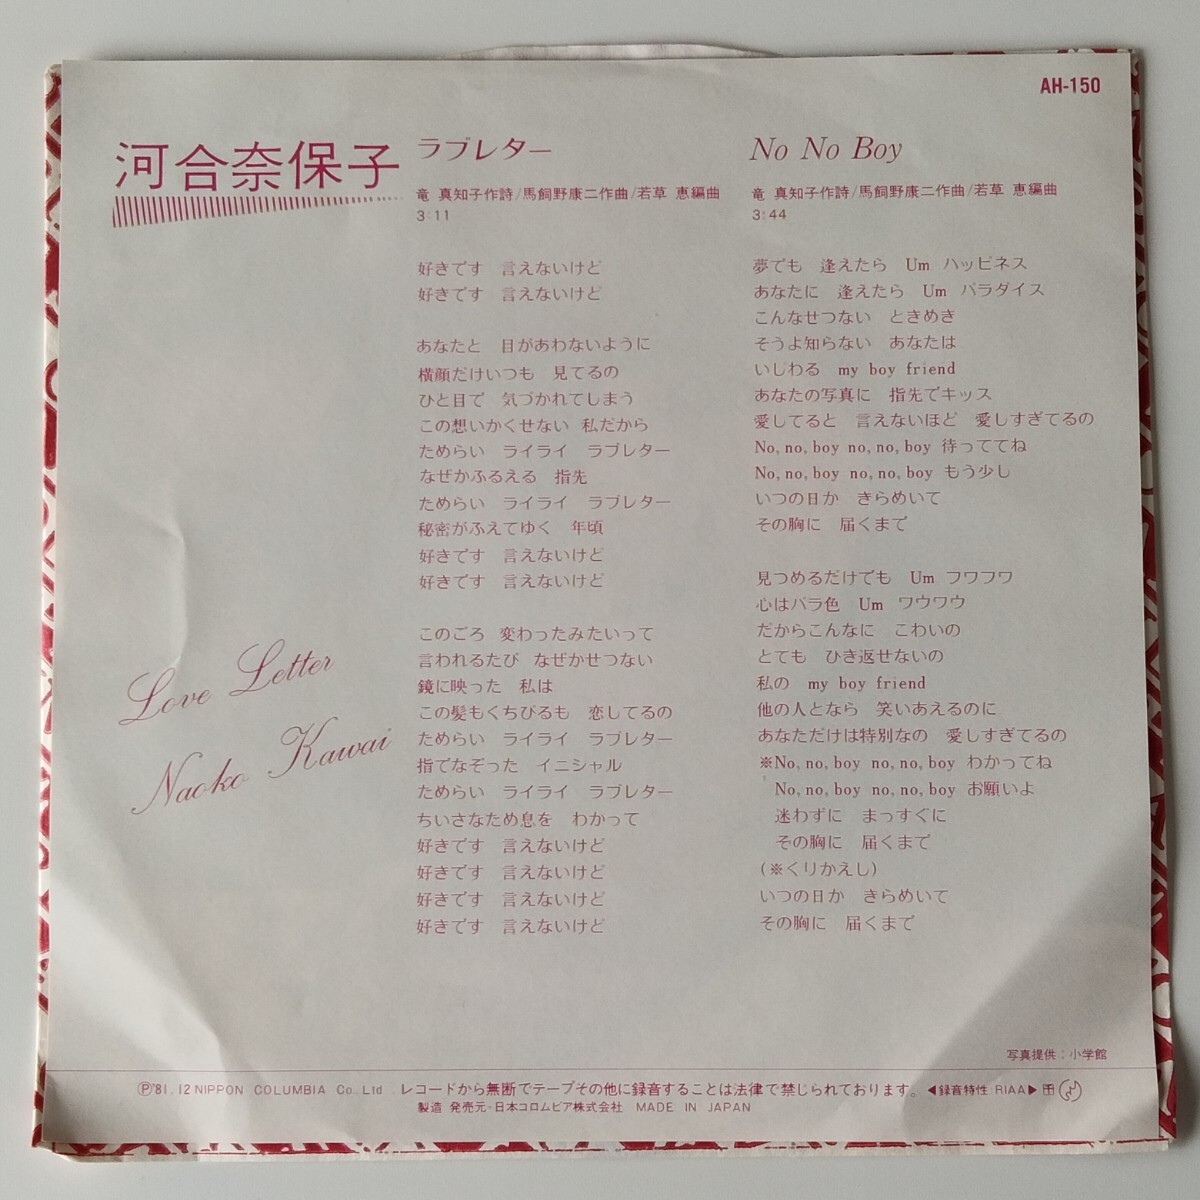 AH-150
河合奈保子
Love Letter
Naoko Kawai
ラブレター
竜 真知子作詩/馬飼野康二作曲/若草 恵編曲
3:11
好きです 言えないけど
好きです 言えないけど
あなたと 目があわないように
横顔だけいつも 見てるの
ひと目で 気づかれてしまう
この想いかくせない 私だから
ためらい ライライ ラブレター
なぜかふるえる 指先
ためらい ライライ ラブレター
秘密がふえてゆく 年頃
好きです 言えないけど
好きです 言えないけど
このごろ 変わったみたいって
言われるたび なぜかせつない
鏡に映った 私は
この髪もくちびるも 恋してるの
ためらい ライライ ラブレター
指でなぞった イニシャル
ためらい ライライ ラブレター
ちいさなため息を わかって
好きです 言えないけど
好きです 言えないけど
好きです 言えないけど
好きです 言えないけど
No No Boy
竜 真知子作詩/馬飼野康二作曲/若草 恵編曲
3:44
夢でも 逢えたら Um ハッピネス
あなたに 逢えたら Um パラダイス
こんなせつない ときめき
そうよ知らない あなたは
いじわる my boy friend
あなたの写真に 指先でキッス
愛してると 言えないほど 愛しすぎてるの
No, no, boy no, no, boy 待っててね
No, no, boy no, no, boy もう少し
いつの日か きらめいて
その胸に 届くまで
見つめるだけでも Um フワフワ
心はバラ色 Um ワウワウ
だからこんなに こわいの
とても ひき返せないの
私の my boy friend
他の人となら 笑いあえるのに
あなただけは特別なの 愛しすぎてるの
※No, no, boy no, no, boy わかってね
No, no, boy no, no, boy お願いよ
迷わずに まっすぐに
その胸に 届くまで
(※くりかえし)
いつの日か きらめいて
その胸に 届くまで
写真提供:小学館
Ⓟ'81.12 NIPPON COLUMBIA Co., Ltd. レコードから無断でテープその他に録音することは法律で禁じられております。◀録音特性:RIAA▶
製造 発売元・日本コロムビア株式会社 MADE IN JAPAN